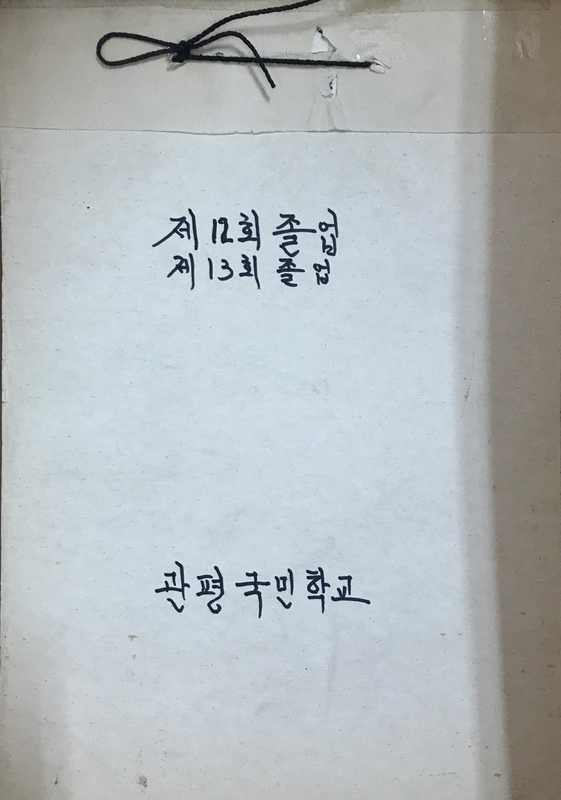 제 12회 졸업
제 13회 졸업
관평국민학교